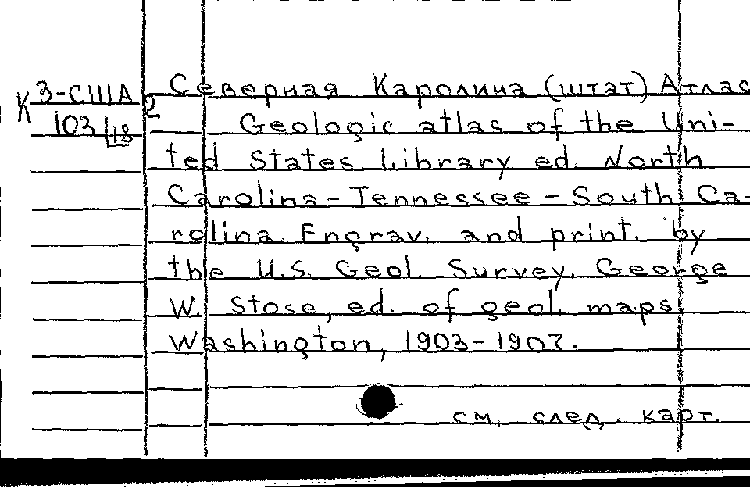 К 3-США 2
103 18
Северная Каролина (штат) Атлас
Geologic atlas of the Uni-
ted States Library ed. North
Carolina - Tennessee - South Ca-
rolina. Engrav. and print. by
the U.S. Geol. Survey. George
W. Stose, ed. of geol. maps.
Washington, 1903-1907.
см. след. карт.